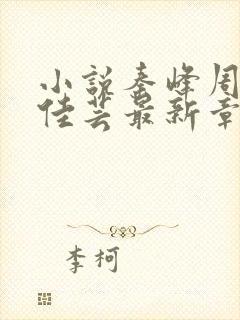 小说秦峰周
佳芸最新章
李柯